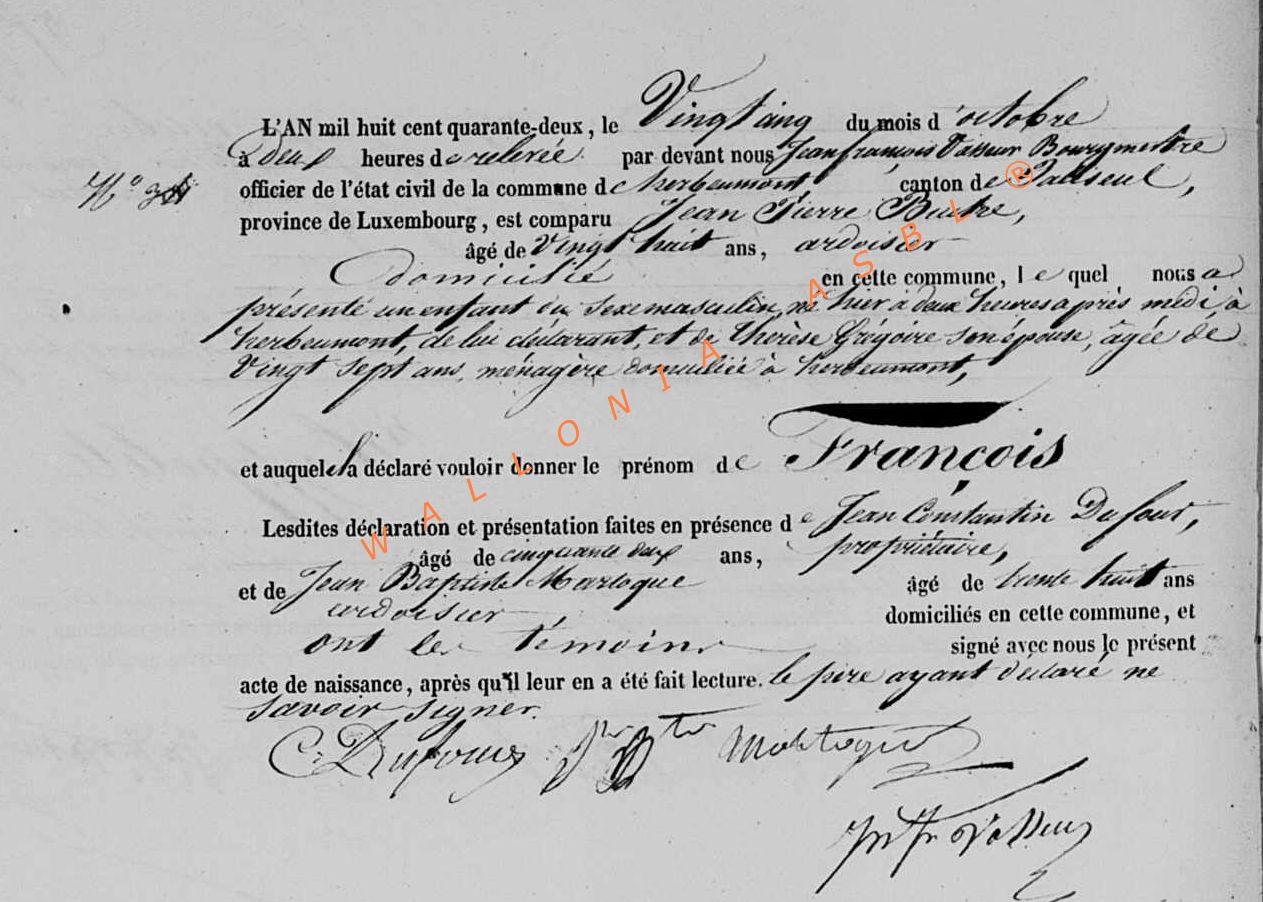 L'AN mil huit cent quarante-deux, le Vingt cinq du mois d'octobre
à deux heures de relevée par devant nous Jean françois Vasseur Bourgmestre
N°
officier de l'état civil de la commune de herbeumont, canton de Paliseul,
province de Luxembourg, est comparu Jean Pierre
âgé de Vingt huit ans, ardoisier
domicilié en cette commune, lequel nous a
présenté un enfant du sexe masculin, né hier à deux heures après midi, à
herbeumont, de lui déclarant, et de thérèse Grégoire son épouse, âgée de
Vingt sept ans, ménagère domiciliée à herbeumont,
et auquel il a déclaré vouloir donner le prénom de François
Lesdites déclaration et présentation faites en présence de Jean Constantin Dufour,
âgé de cinquante deux ans, propriétaire,
et de Jean Baptiste Marloque âgé de trente huit ans
ardoisier domiciliés en cette commune, et
ont les témoins signé avec nous le présent
acte de naissance, après qu'il leur en a été fait lecture. le père ayant déclaré ne
savoir signer.
C. Dufour
WALLONIA ASBL ®